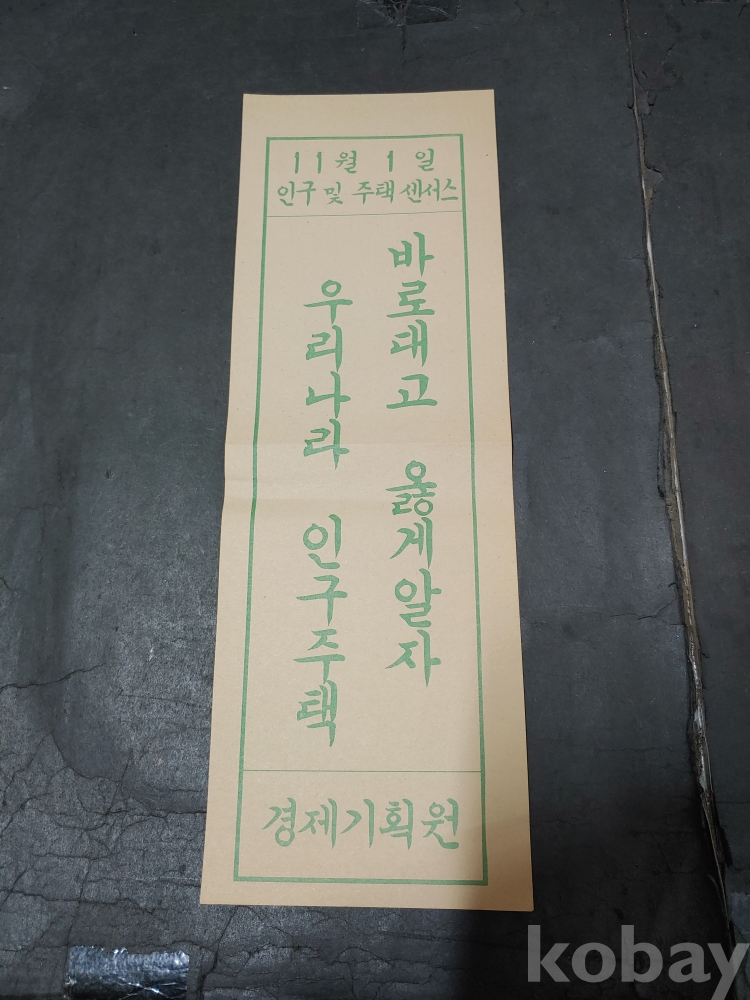 11월 1일
인구 및 주택 센서스
바로대고 옳게알자
우리나라 인구주택
경제기획원
kobay